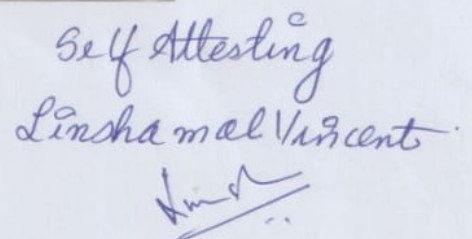 Self Attesting
Linshamol Vincent